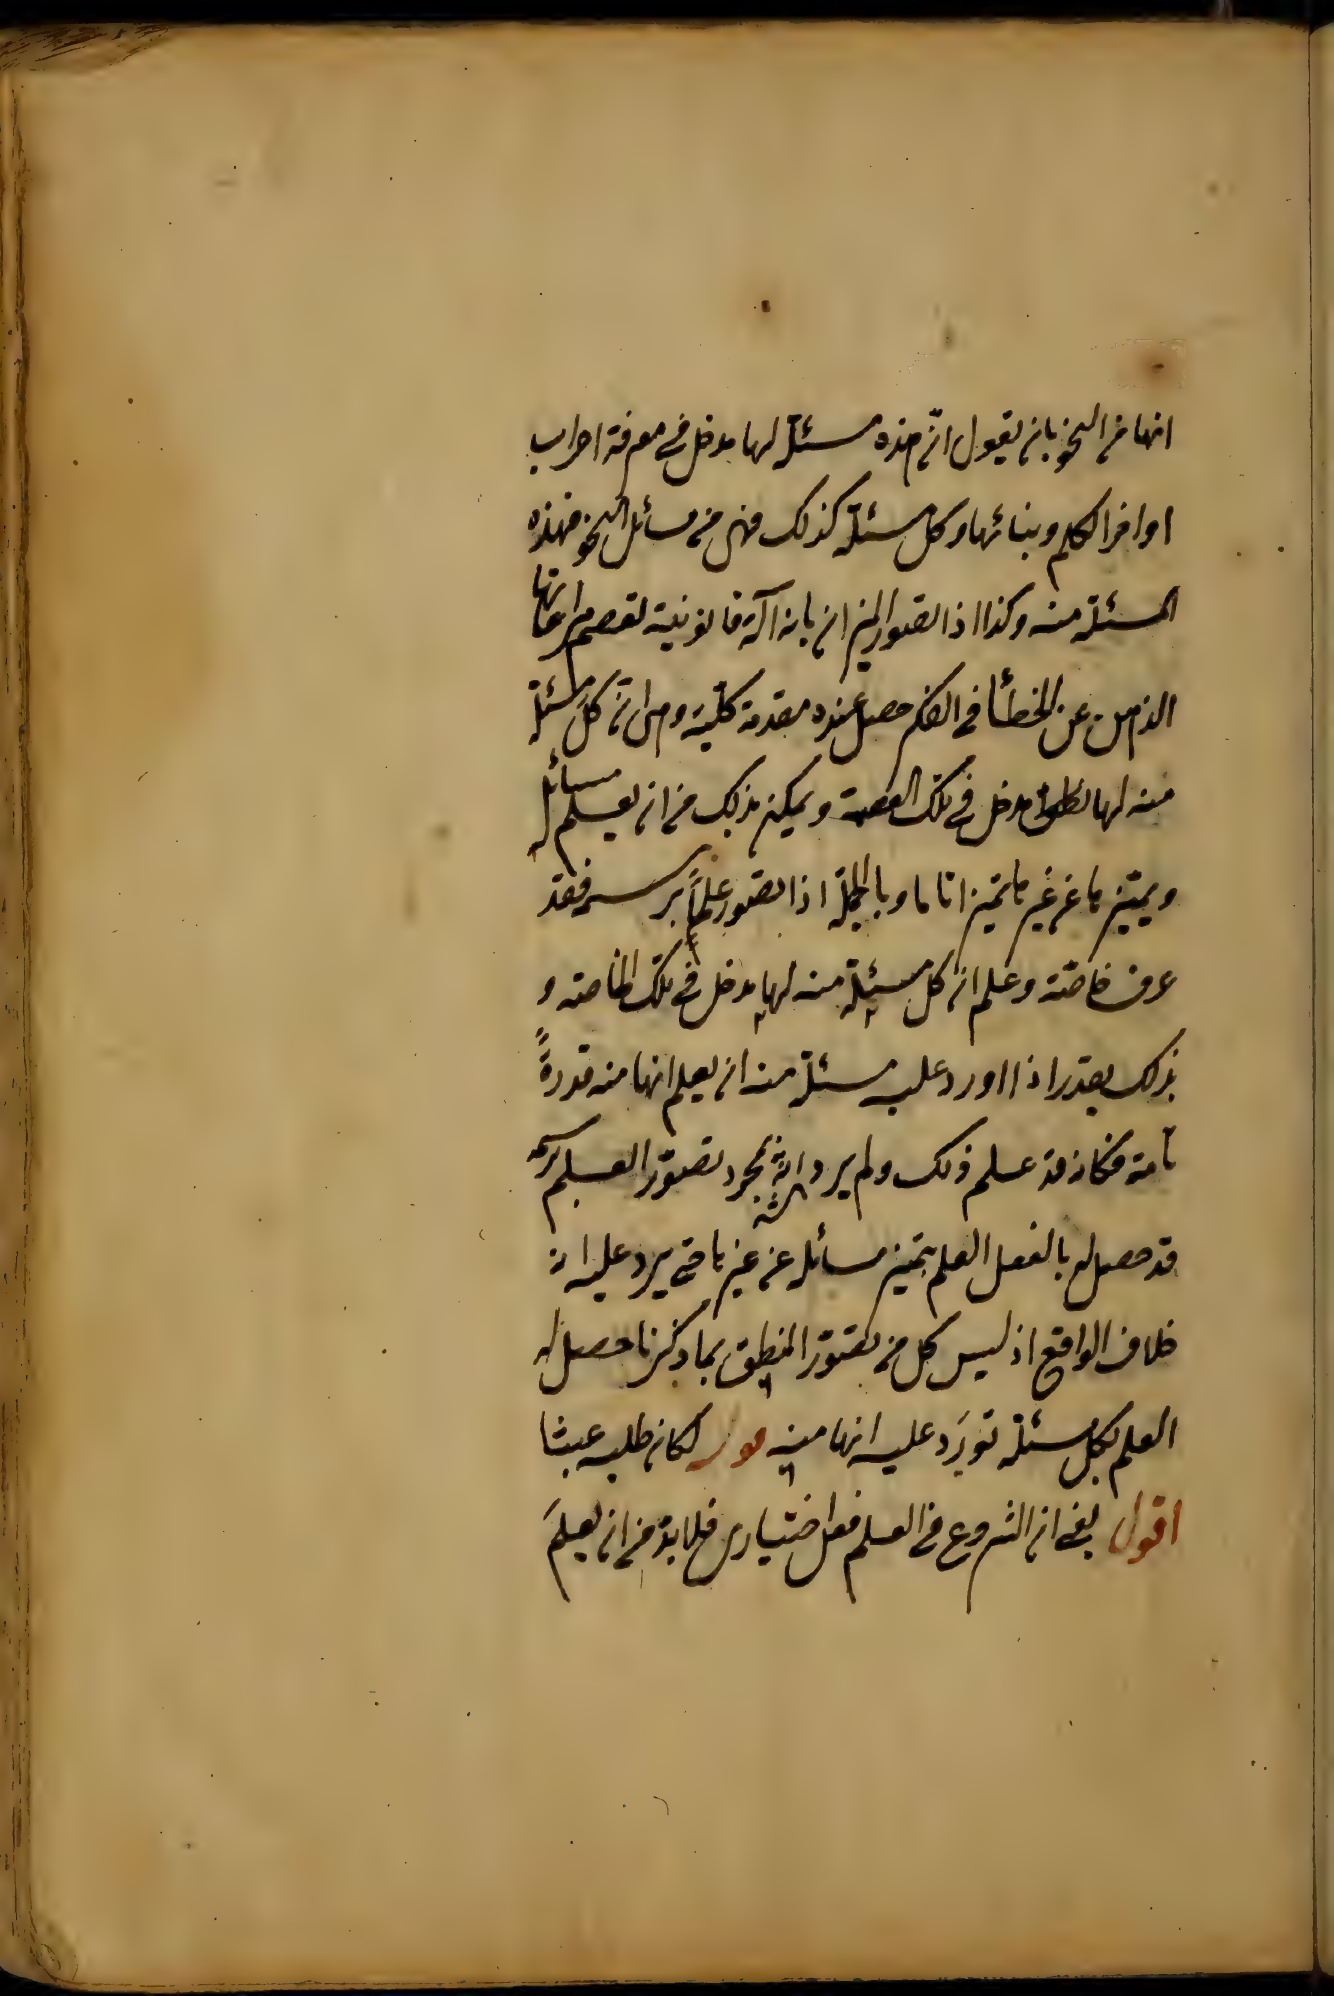 انها من النحو بان يقول ان هذه مسئلة لها مدخل في معرفة اعراب
اواخر الكلم وبنائها وكل مسئلة كذلك فهي من مسائل النحو فهذه
المسئلة منه وكذا اذا تصور الميزان بانه آلة قانونية تعصم مراعاتها
الذهن عن الخطأ في الفكر حصل عنده مقدمة كلية وهي ان كل مسئلة
منه لها مدخل في تلك العصمة ويمكن بذلك من ان يعلم مسائله
ويميزها عن غيرها تميزا تاما وبالجملة اذا تصور علماً برسمه فقد
عرف خاصته وعلم ان كل مسئلة منه لها مدخل في تلك الخاصة و
بذلك يقدر اذا اورد عليه مسئلة منه ان يعلم انها منه قدرةً
تامة فكانه قد علم ذلك ولم يرد انه بمجرد تصوّر العلم برسمه
قد حصل له بالفعل العلم بتميز مسائله عن غيرها حتى يرد عليه انه
خلاف الواقع اذ ليس كل من تصوّر المنطق بما ذكرنا حصل له
العلم بكل مسئلة تورَد عليه انها منه قوله لكان طلبه عبثا
اقول يعني ان الشروع في العلم فعل اختياري فلا بد من ان يعلمَ